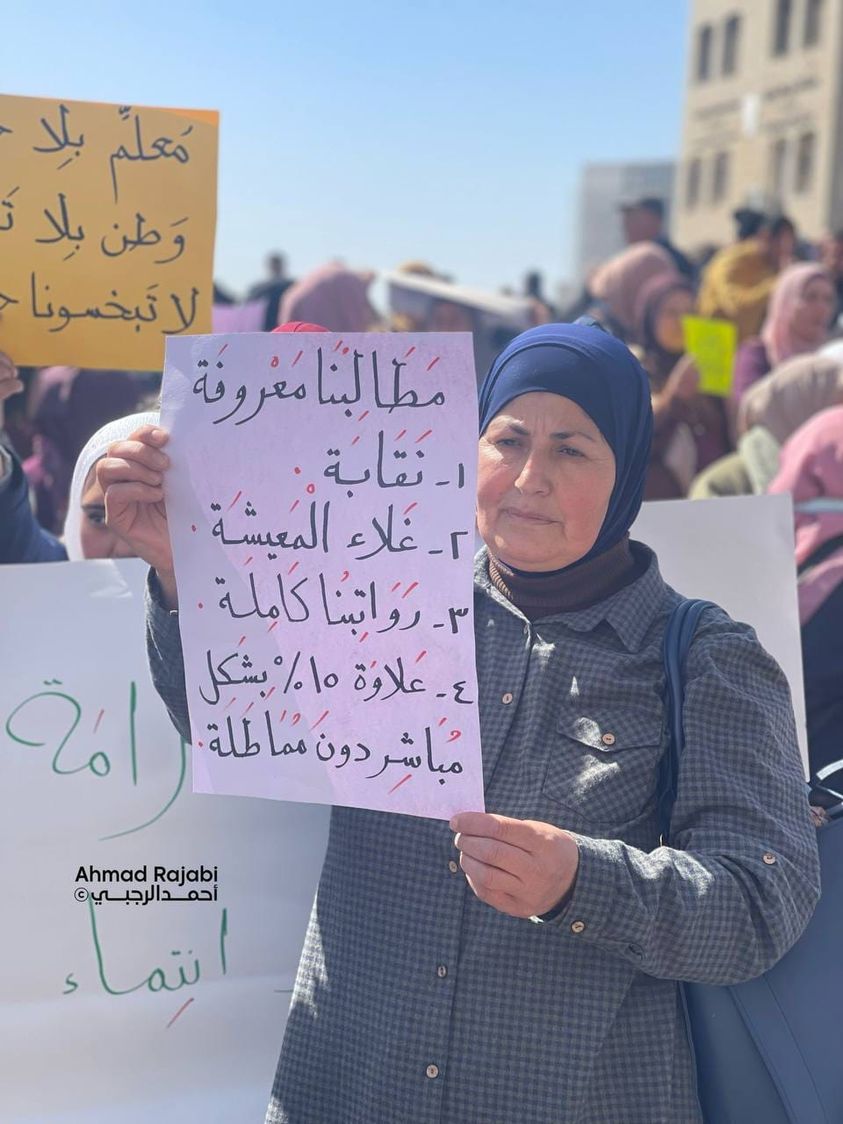 مَعلِّم بِلا
وَطن بِلا
لا تَبخسونا
مَطَالِبُنا مَعْروفَة
١- نَقَابَة .
٢- غَلاء الْمَعيشَة .
٣- رَوَاتِبُنا كَامِلَة .
٤- عَلاوَة ١٥% بِشَكل
مُباشِر دونَ مُمَاطَلَة .
Ahmad Rajabi
أحمد الرجبي ©
انتِماء